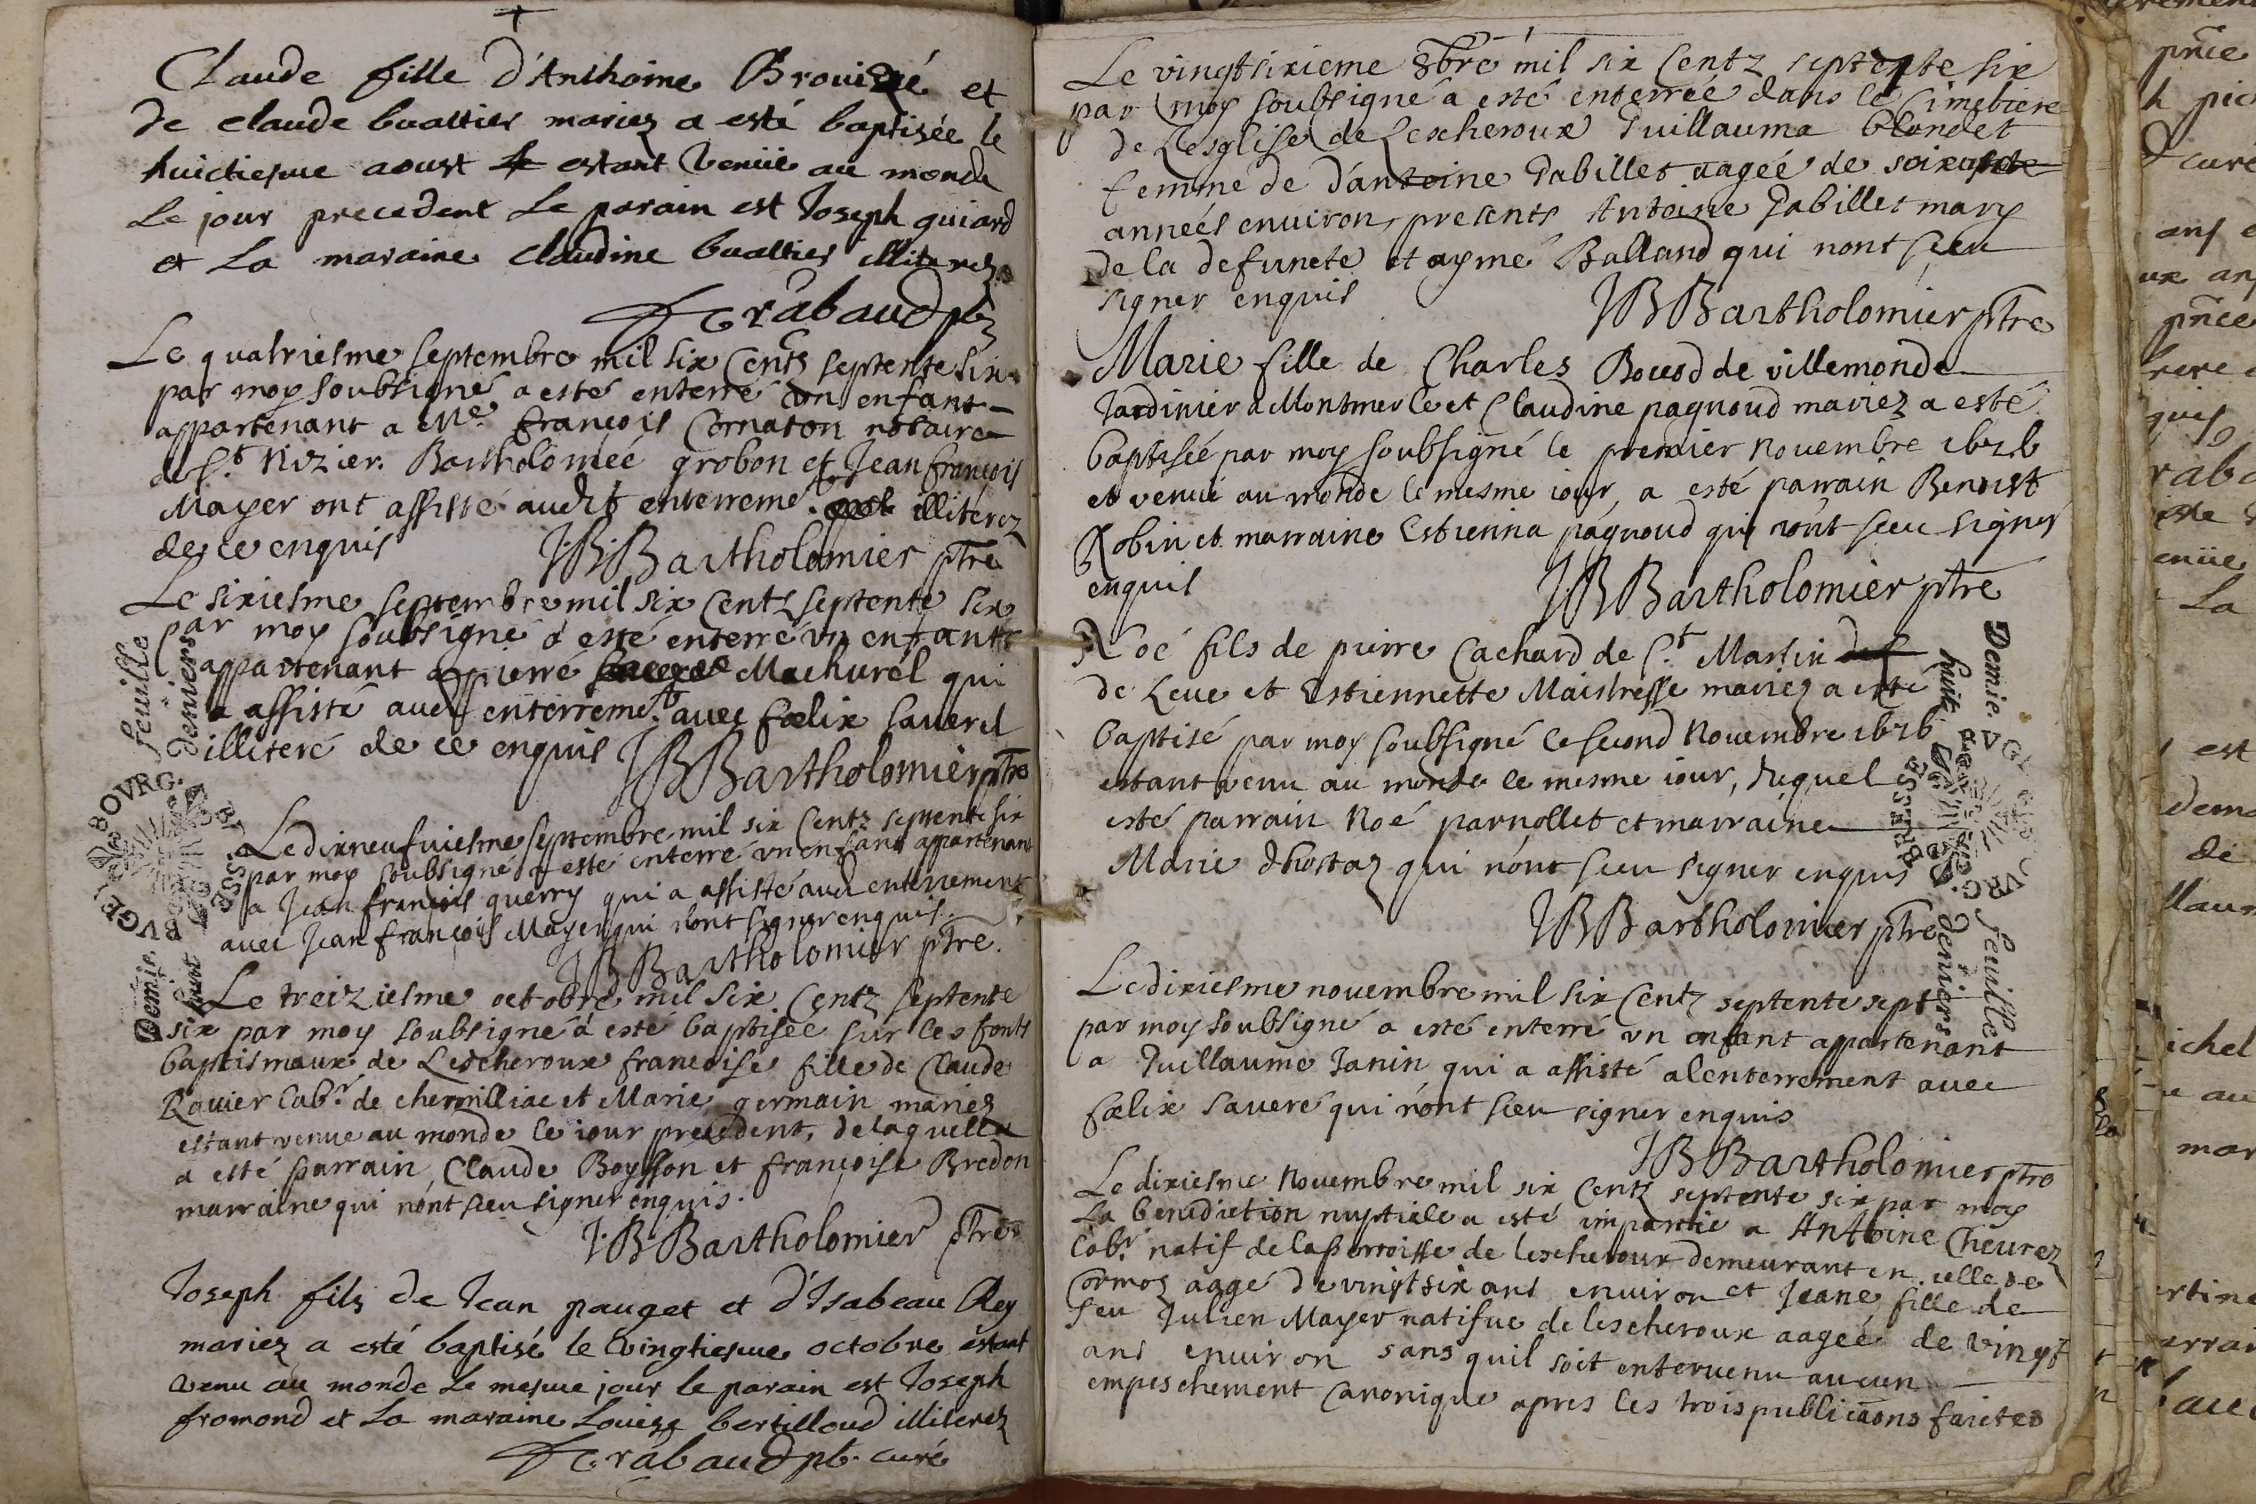 Claude fille d'Anthoine et
de claude buattier mariez a esté baptisée le
huictiesme aoust estant venüe au monde
Le jour precedent Le parain est Joseph guiard
et La maraine Claudine buattier illiterez
rabaud pbr
Le quatriesme septembre mil six Centz septente six
par moy soubsigné a esté enterré un enfant
appartenant a Me. François Cornaton notaire
de St. Nizier. Bartholomée grobon et Jean françois
Mayer ont assisté audit enterremet. illiterez
de ce enquis JB Bartholomier ptre
Le sixiesme septembre mil six Centz septente six
par moy soubsigné a esté enterré un enfant
appartenant a pierre Machurel qui
a assisté aud enterremet. avec foelix saverel
illiteré de ce enquis JB Bartholomier ptre
Le dixneufuiesme septembre mil six Centz septente six
par moy soubsigné a esté enterré un enfant appartenant
a Jean françois querry qui a assisté aud enterrement
avec Jean françois Mayer qui nont signer enquis
JB Bartholomier ptre.
Le treiziesme octobre mil six Centz septente
six par moy soubsigné a esté baptisée sur les fonts
baptismaux de Lescheroux francoise fille de Claude
Rouier labr. de chermilliac et Marie germain mariez
estant venue au monde le iour precedent, de laquelle
a esté parrain Claude Boysson et françoise Bredon
marraine qui nont sceu signer enquis.
J.B Bartholomier ptre
Joseph filz de Jean pauget et d'Isabeau Rey
mariez a esté baptisé le vingtiesme octobre estant
venu au monde Le mesme jour le parain est Joseph
fromond et La maraine Louise bertilloud illiterez
rabaud pb. curé
feuille
deniers
BOVRG. BRESSE BVGEY
Demie.
huit
Le vingtsixieme 8bre mil six Centz septente six
par moy soubsigné a esté enterrée dans le Cimetiere
de Lesglise de Lescheroux Guillauma blondet
femme de d'antoine Gabillet aagée de soixante
années environ, presents Antoine Gabillet mary
de la defuncte et aymé Balland qui nont sceu
signer enquis JB Bartholomier ptre
Marie fille de Charles Bouod de villemonde
Jardinier a Montmerle et Claudine pagnoud mariez a esté
baptisée par moy soubsigné le premier novembre 1676
et venue au monde le mesme iour, a esté parrain Benoist
Robin et marraine Estienna pagnoud qui n'ont sceu signer
enquis JB Bartholomier ptre
Noé fils de pierre Cachard de St. Martin
de Leue et Estiennette Maistresse mariez a esté
baptisé par moy soubsigné le second Novembre 1676
estant venu au monde le mesme iour, duquel a
esté parrain Noé parnollet et marraine
Marie dhostaz qui n'ont sceu signer enquis
JB Bartholomier ptre
Le dixiesme novembre mil six Centz septente sept
par moy soubsigné a esté enterré un enfant appartenant
a Guillaume Janin qui a assisté a lenterrement avec
foelix Saveré qui n'ont sceu signer enquis
JB Bartholomier ptre
Le dixiesme Novembre mil six Centz septente six par moy
La benediction nuptiale a esté impartie a Antoine Cheurez
labr. natif de la parroisse de lescheroux demeurant en celle de
Cormoz aagé de vingt six ans environ et Jeane fille de
feu Julien Mayer natifue de lescheroux aageé de vingt
ans environ sans quil soit entervenu aucun
empeschement Canonique apres les trois publicaons faictes
Demie.
huit
BRESSE
feuille
deniers